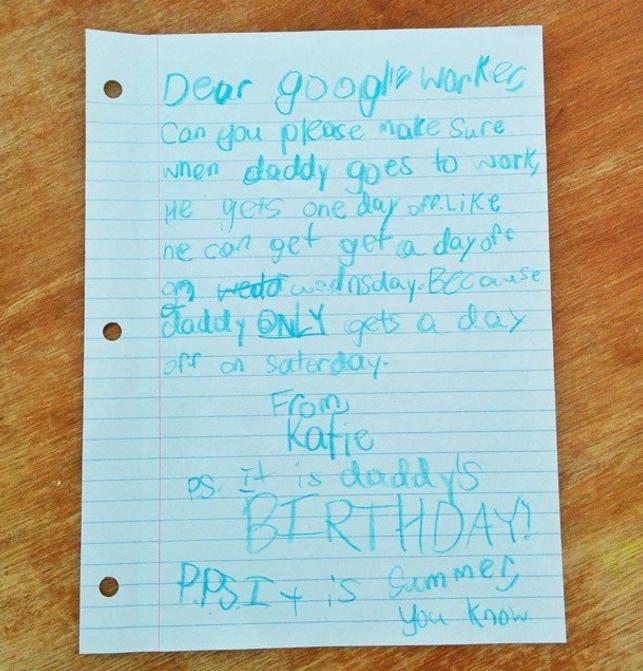 Dear google worker,
Can you please make sure
when daddy goes to work,
He gets one day off. Like
he can get get a day off
on wednsday. Because
daddy ONLY gets a day
off on saterday.
From,
Katie
P.S. It is daddy's
BIRTHDAY!
P.P.S. It is summer,
you know